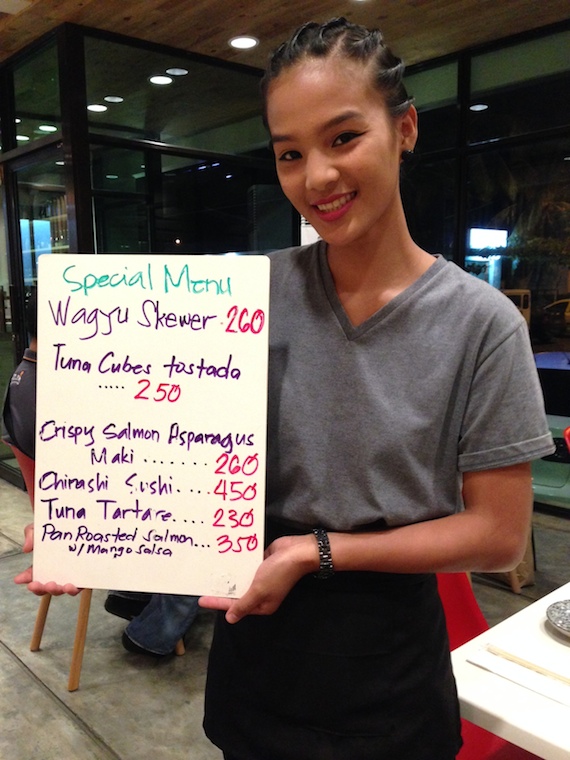 Special Menu
Wagyu Skewer . 260
Tuna Cubes tostada
..... 250
Crispy Salmon Asparagus
Maki ....... 260
Chirashi Sushi .... 450
Tuna Tartare .... 230
Pan Roasted Salmon ... 350
w/ Mango Salsa